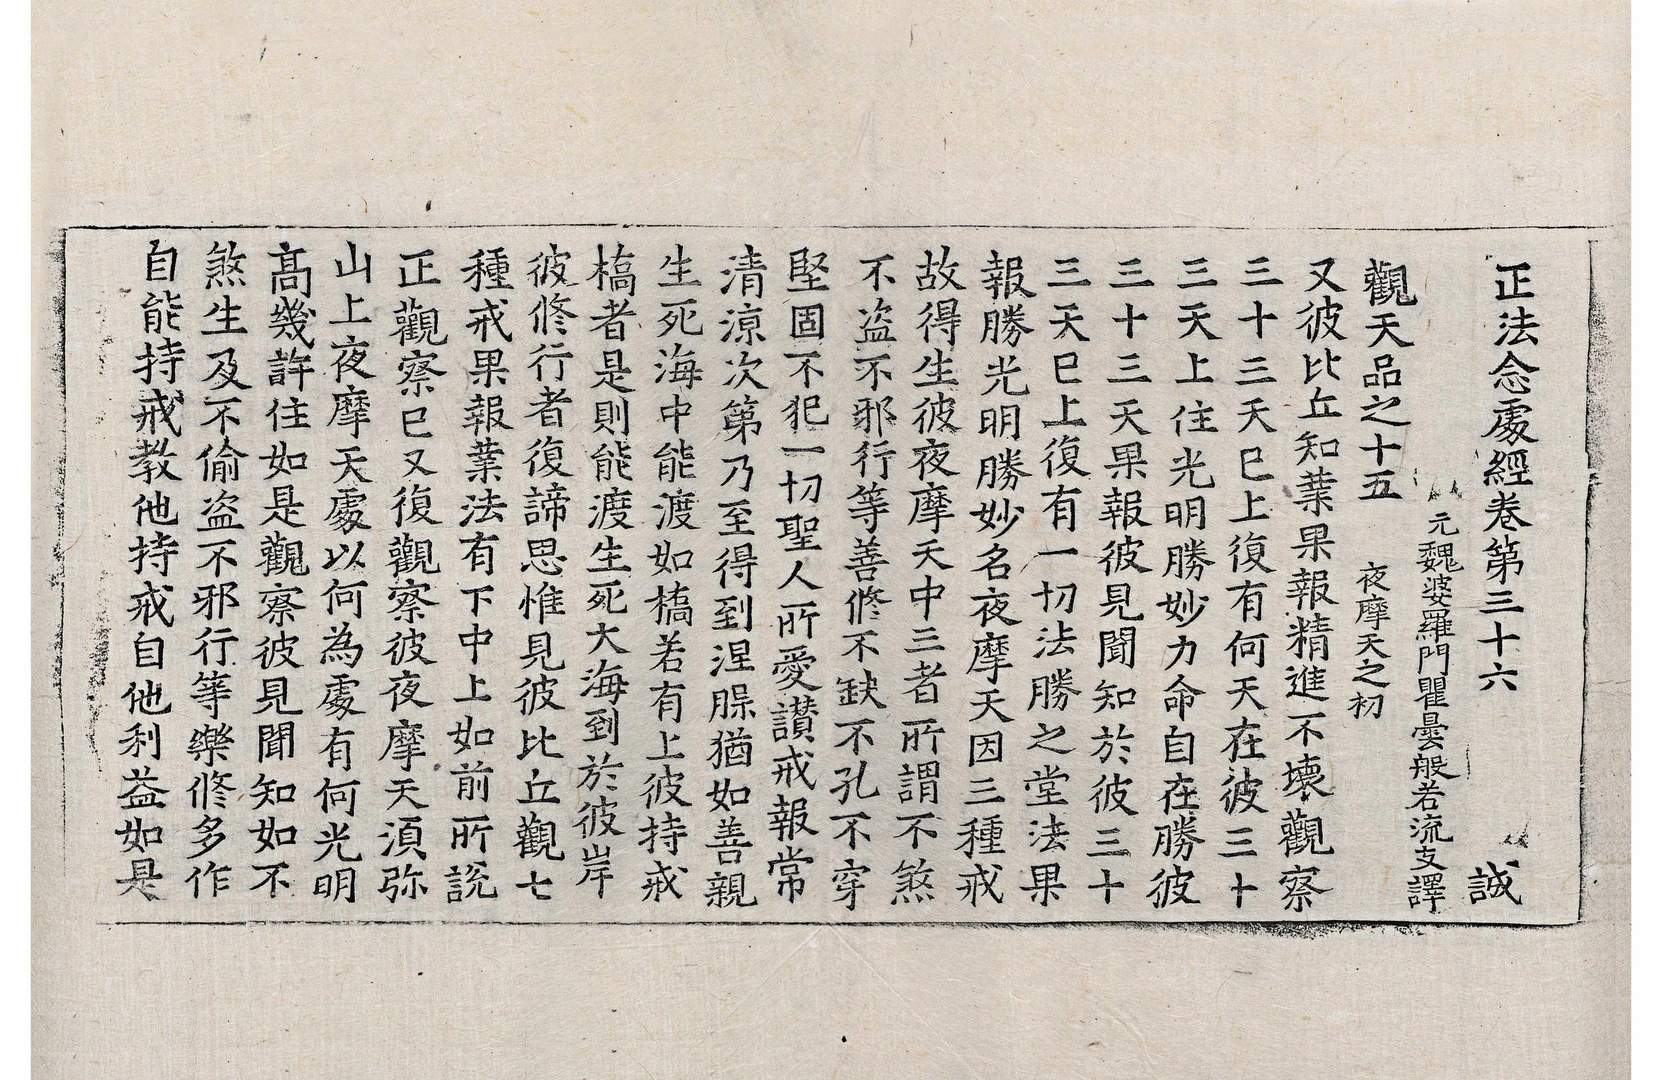 正法念處經卷第三十六 誠
元魏婆羅門瞿曇般若流支譯
觀天品之十五 夜摩天之初
又彼比丘知業果報精進不壞觀察
三十三天已上復有何天在彼三十
三天上住光明勝妙力命自在勝彼
三十三天果報彼見聞知於彼三十
三天已上復有一切法勝之堂法果
報勝光明勝妙名夜摩天因三種戒
故得生彼夜摩天中三者所謂不煞
不盜不邪行等善修不缺不孔不穿
堅固不犯一切聖人所愛讃戒報常
清涼次第乃至得到涅膿猶如善親
生死海中能渡如橋若有上彼持戒
橋者是則能渡生死大海到於彼岸
彼修行者復諦思惟見彼比丘觀七
種戒果報業法有下中上如前所說
正觀察已又復觀察彼夜摩天湏弥
山上夜摩天處以何為處有何光明
高幾許住如是觀察彼見聞知如不
煞生及不偷盜不邪行等樂修多作
自能持戒教他持戒自他利益如是